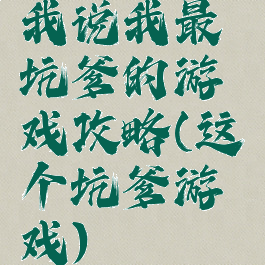 我说我最
坑爹的游
戏攻略(这
个坑爹游
戏)